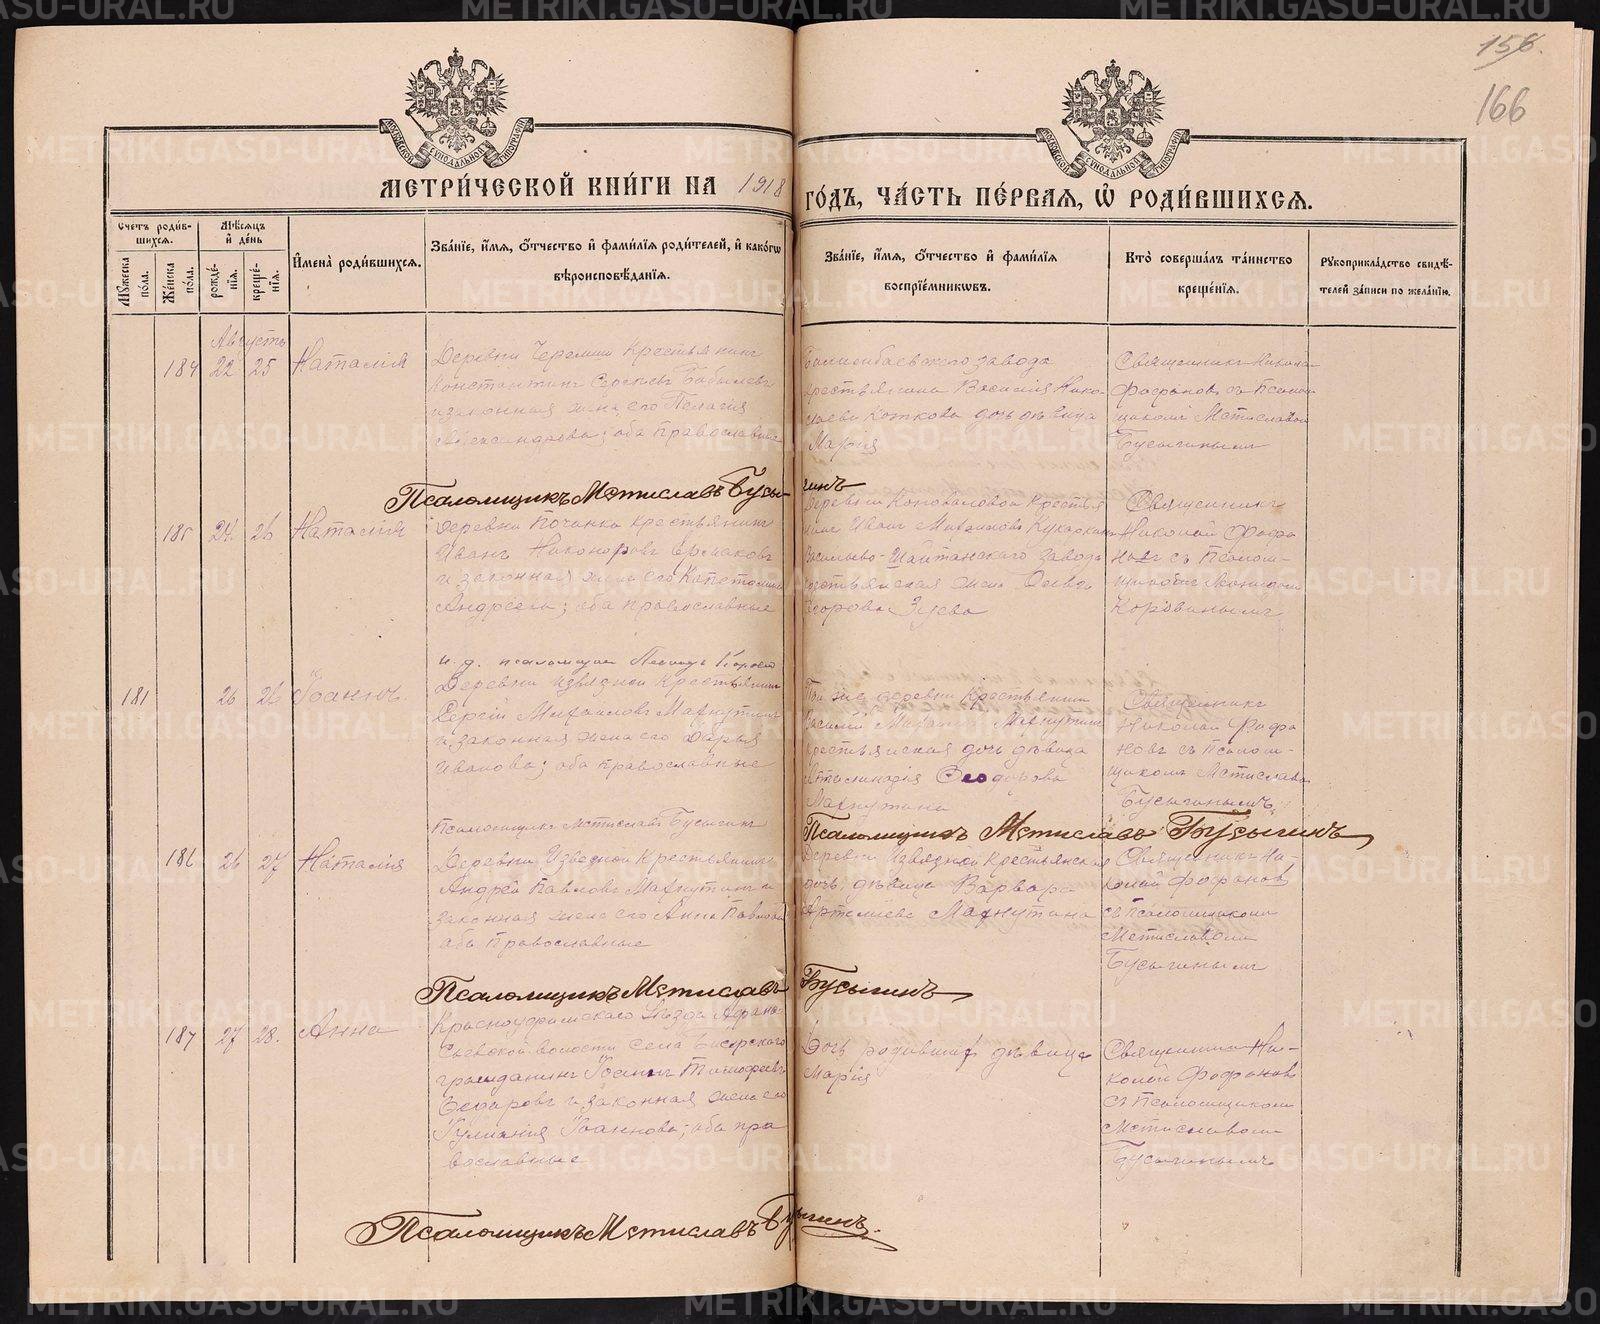 156.
166
МОСКОВСКОЙ СѴНОДАЛЬНОЙ ТИПОГРАФІИ
МОСКОВСКОЙ СѴНОДАЛЬНОЙ ТИПОГРАФІИ
МЕТРИ́ЧЕСКОЙ КНИ́ГИ НА 1918 ГО́ДЪ, ЧА́СТЬ ПЕ́РВАЯ, Ѽ РОДИ́ВШИХСЯ.
Счетъ роди́в-
шихся.
Мѣ́сяцъ
и҆ де́нь
Мꙋ́жеска по́ла.
Же́нска по́ла.
рожде́-
нїя.
креще́-
нїя.
И҆мена̀ роди́вшихся.
Зва́нїе, и҆́мя, ѻ҆́тчество и҆ фами́лїя роди́телей, и҆ како́гѡ
вѣроисповѣ́данїя.
Зва́нїе, и҆́мя, ѻ҆́тчество и҆ фами́лїя
воспрїе́мникѡвъ.
Кто̀ соверша́лъ та́инство
креще́нїя.
Рꙋкоприкла́дство свидѣ́-
телей за́писи по жела́нїю.
Августъ
184 22 25 Наталія
Деревни Черемши Крестьянинъ
Константинъ Сергеевъ Бабылевъ
и законная жена его Пелагія
Александрова; оба православные
завода
крестьянина Василія Нико-
лаева Коткова дочь дѣвица
Марія
Священникъ Никола
Фофановъ съ Псалом
щикомъ Мстиславом
Бусыгинымъ
Псаломщикъ Мстиславъ Бусыгинъ
185 24 26 Наталія
Деревни Починка крестьянинъ
Иванъ Никоноровъ Ермаковъ
и законная жена его Капетолина
Андреева; оба православные
Деревни Коноваловой Крестья
нинъ Иванъ Михаиловъ Кухаркин
Васильево-Шайтанскаго завода
крестьянская жена
Егорова Зуева
Священникъ
Николай Фофа
новъ съ Псалом-
щикомъ Леонидом
Коровинымъ
и. д. псаломщика Леонидъ Коров
181 26 26 Іоаннъ
Деревни Извязной Крестьянинъ
Сергій Михаиловъ Махнутинъ
и законная жена его Дарья
Иванова; оба православные
Той же деревни Крестьянинъ
Василій Махнутинъ
крестьянская дочь дѣвица
Ѳеодорова
Махнутина
Священникъ
Николай Фофа
новъ съ Псалом-
щикомъ Мстиславо
Бусыгинымъ
Псаломщикъ Мстиславъ Бусыгинъ
Псаломщикъ Мстиславъ Бусыгинъ
186 26 27 Наталія
Деревни Извязной Крестьянинъ
Андрей Павловъ Махнутинъ и
законная жена его Анна Павлова
оба Православные
Деревни Извязной Крестьянская
дочь, дѣвица Варвара
Артемьева Махнутина
Священникъ Ни-
колай Фофановъ
съ Псаломщикомъ
Мстиславомъ
Бусыгинымъ
Псаломщикъ Мстиславъ Бусыгинъ
187 27 28. Анна
Красноуфимскаго Уѣзда Афана-
сьевской волости Села Бисерскаго
гражданинъ Іоаннъ Тимофеевъ
и законная жена его
Іуліанія Іоаннова; оба пра
вославные
Дочь дѣвица
Марія
Священникъ Ни-
колай Фофановъ
съ Псаломщикомъ
Мстиславомъ
Бусыгинымъ
Псаломщикъ Мстиславъ Бусыгинъ.
METRIKI.GASO-URAL.RU